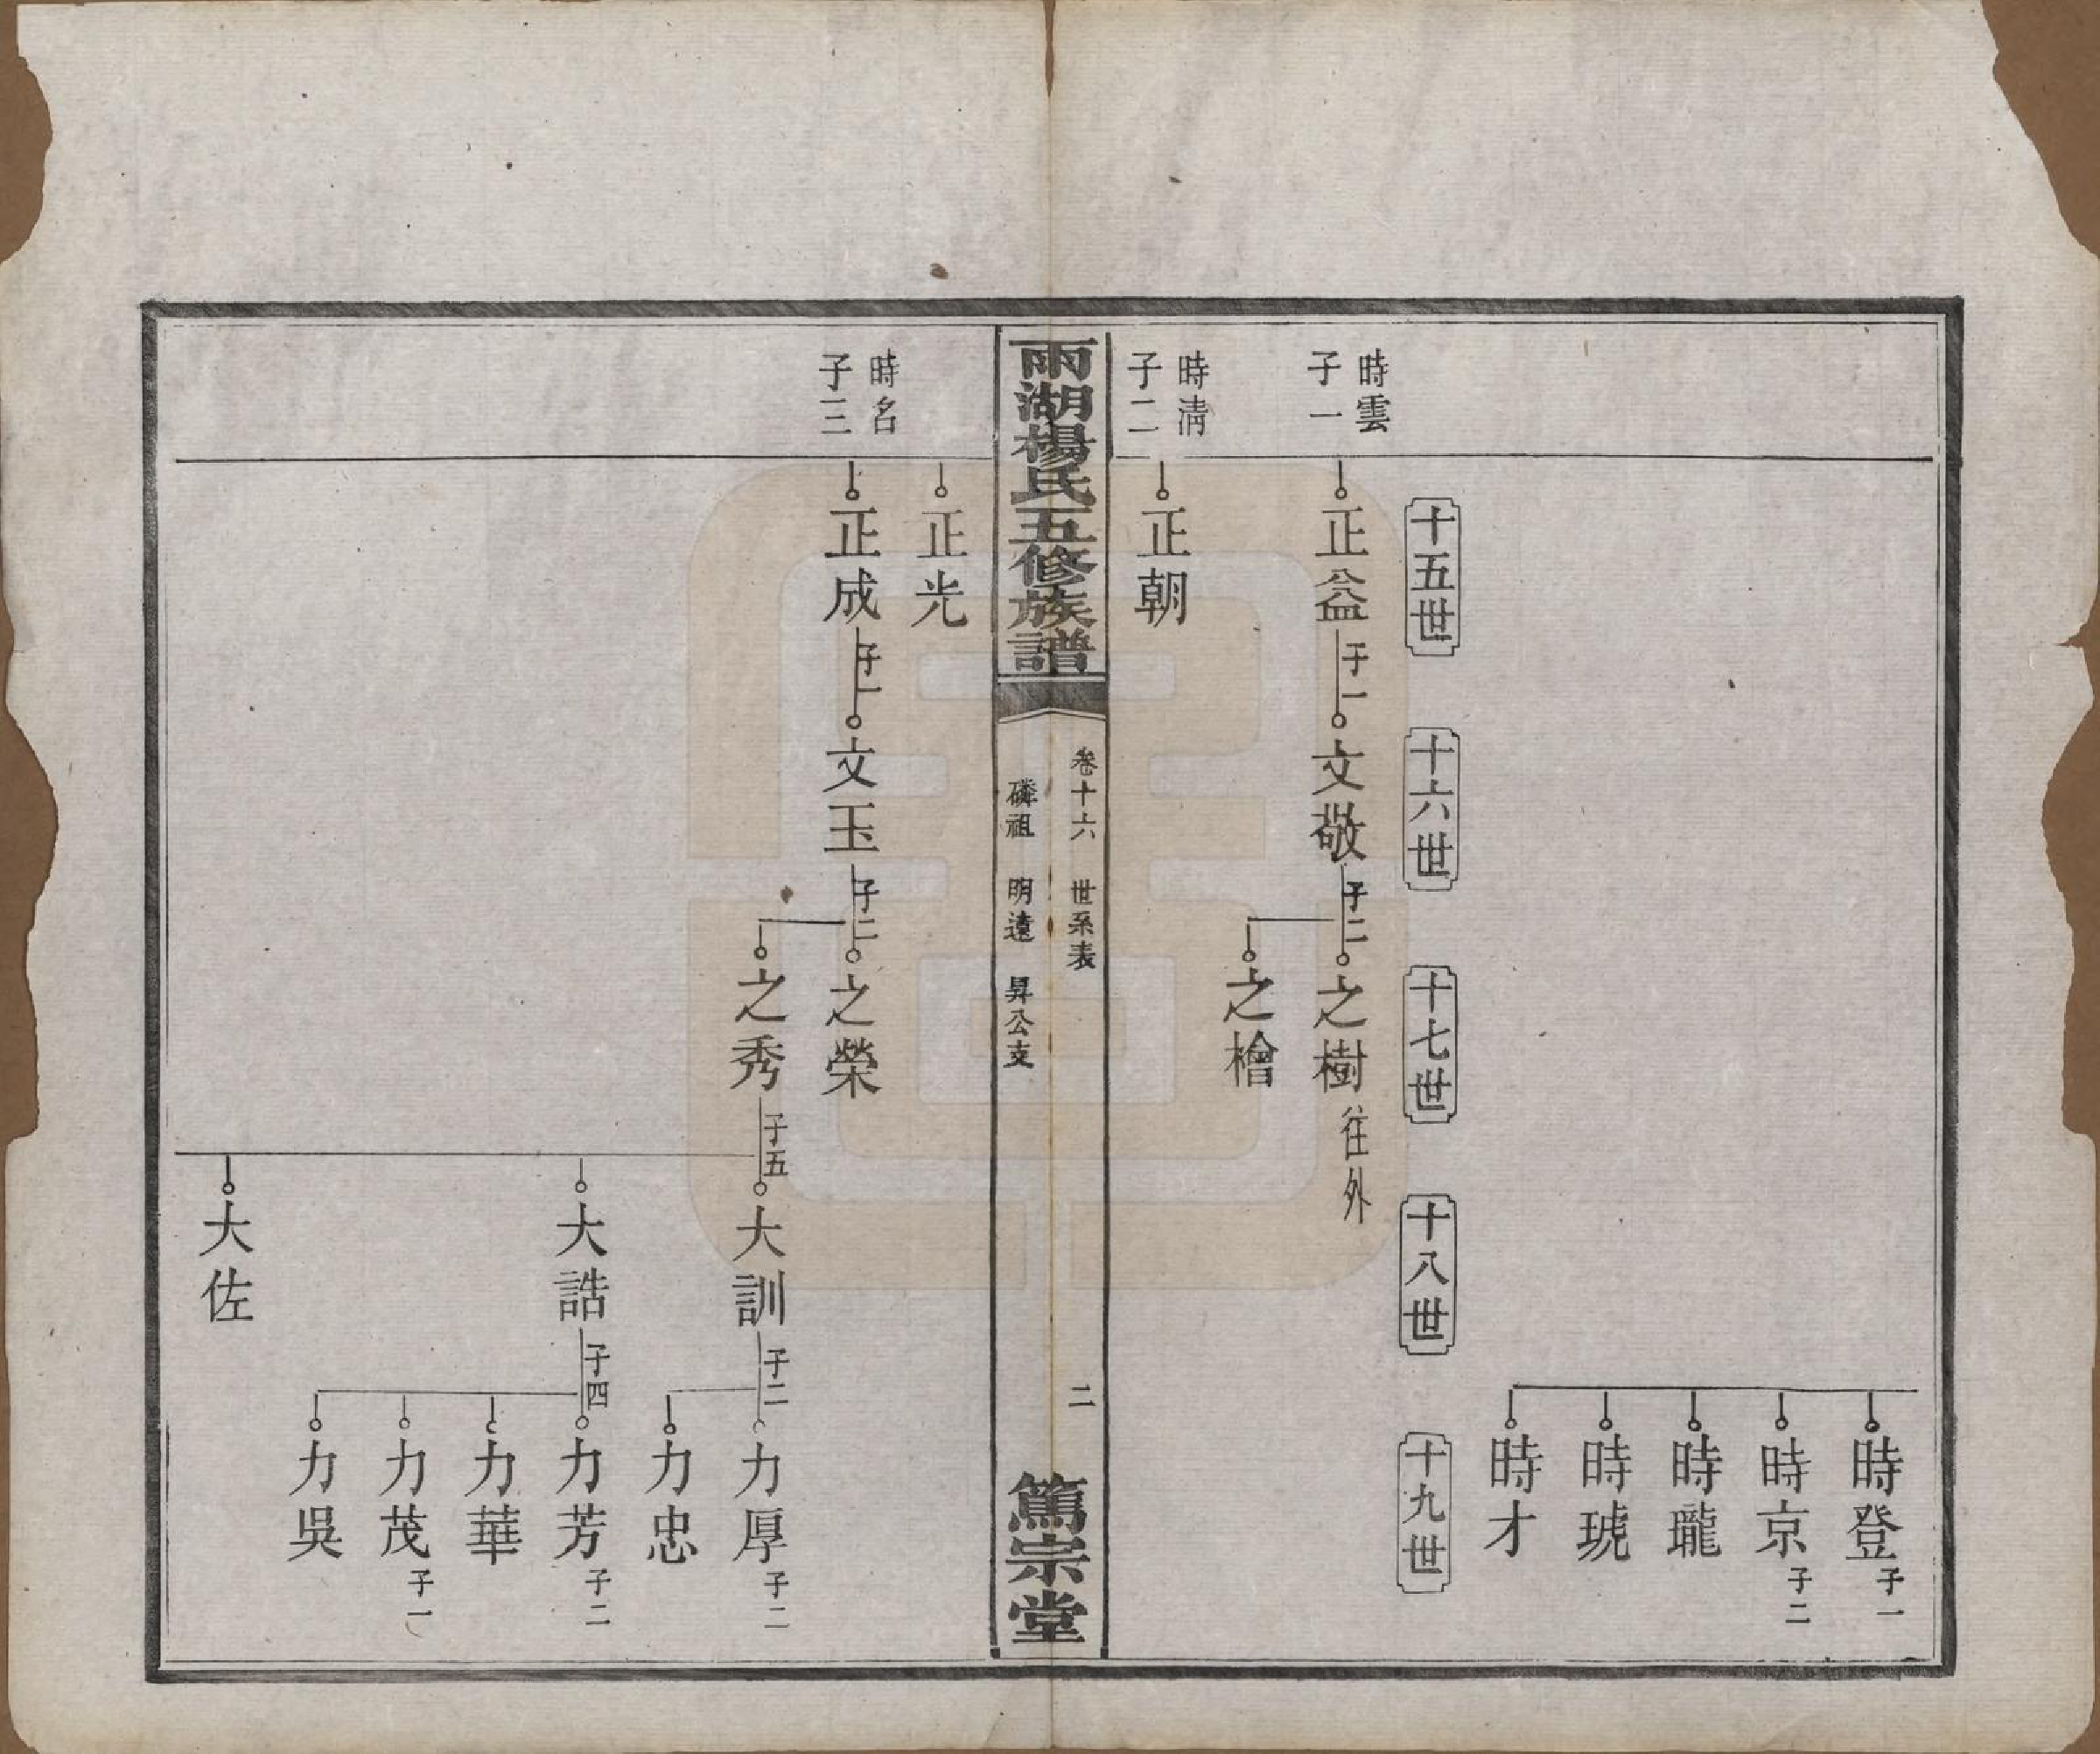 時登 子一
時京 子二
時瓏
時琥
時才
十五世
十六世
十七世
十八世
十九世
時雲
子一
正益 子一
文敬 子二
之樹 往外
之檜
時清
子二
正朝
雨湖楊氏五修族譜
卷十六 世系表
磷祖 明遠 昇公支
二
篤宗堂
正光
時名
子三
正成 子一
文玉 子二
之榮
之秀 子五
大訓 子二
力厚 子二
力忠
大誥 子四
力芳 子二
力華
力茂 子一
力吳
大佐